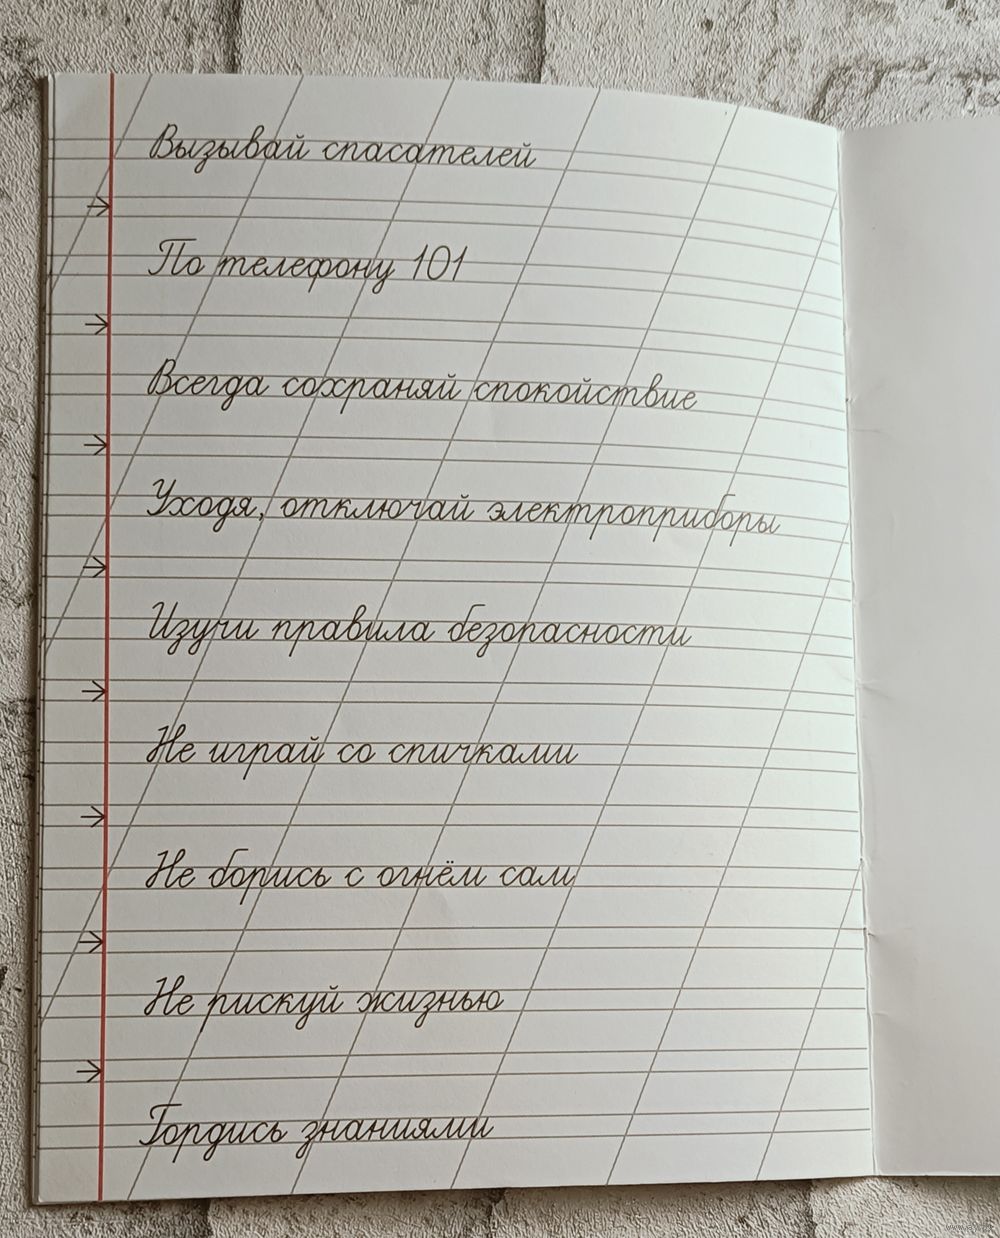 Вызывай спасателей
По телефону 101
Всегда сохраняй спокойствие
Уходя, отключай электроприборы
Изучи правила безопасности
Не играй со спичками
Не борись с огнём сам
Не рискуй жизнью
Гордись знаниями